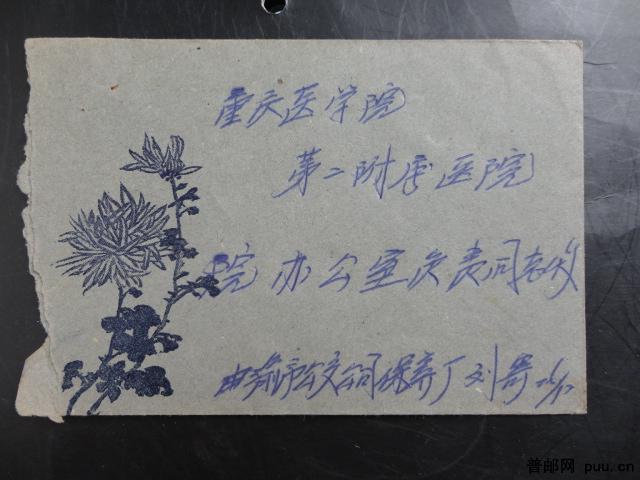 重庆医学院
第二附属医院
院办公室负责同志收
由渝市公交公司保养厂刘寄
普邮网 puu.cn